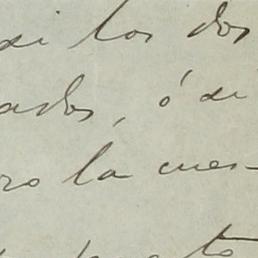 si los dos
ados, ó si
ro la cues-